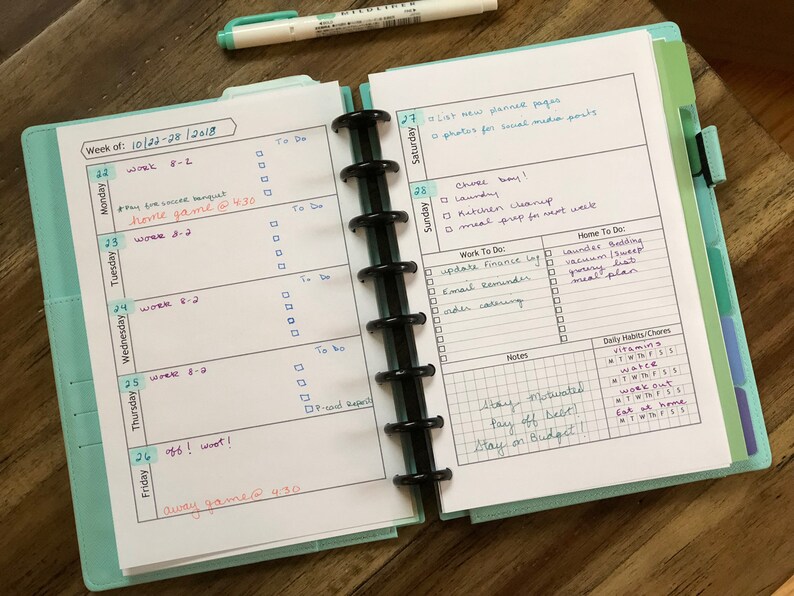 MILDLINER
ZEBRA
Week of: 10/22-28/2018
Monday
22
work 8-2
To Do
*Pay for soccer banquet
home game @ 4:30
Tuesday
23
work 8-2
To Do
Wednesday
24
work 8-2
To Do
Thursday
25
work 8-2
To Do
P-card Report
Friday
26
off! woot!
away game @ 4:30
Saturday
27
List new planner pages
photos for social media posts
Sunday
28
Chore Day!
Laundry
Kitchen cleanup
meal prep for next week
Work To Do:
update Finance Log
Email Reminder
order catering
Home To Do:
Launder Bedding
vacuum/sweep
grocery list
meal plan
Notes
Stay Motivated
Pay off Debt!
Stay on Budget!
Daily Habits/Chores
vitamins
M T W Th F S S
water
M T W Th F S S
work out
M T W Th F S S
Eat at home
M T W Th F S S